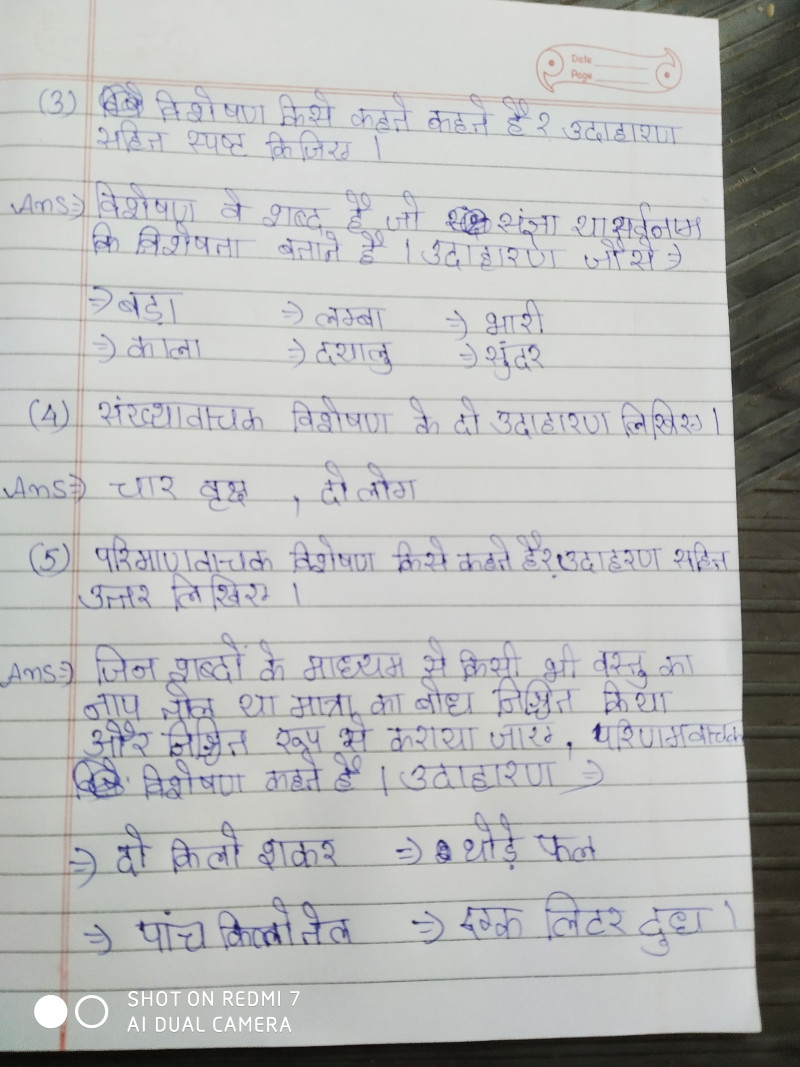 Date
Page
(3) विशेषण किसे कहते कहते हैं? उदाहारण
सहित स्पष्ट किजिए ।
Ans⇒ विशेषण वे शब्द हैं जो संज्ञा या सर्वनाम
कि विशेषता बताते हैं । उदाहारण जौसे ⇒
⇒ बड़ा ⇒ लम्बा ⇒ भारी
⇒ काला ⇒ दयालु ⇒ सुंदर
(4) संख्यावाचक विशेषण के दो उदाहारण लिखिए ।
Ans⇒ चार वृक्ष , दो लोग
(5) परिमाणवाचक विशेषण किसे कहते हैं? उदाहरण सहित
उत्तर लिखिए ।
Ans⇒ जिन शब्दों के माध्यम से किसी भी वस्तु का
नाप तोल या मात्रा का बोध निश्चित किया
और निश्चित रूप से कराया जाए, परिणामवाचक
विशेषण कहते हैं । उदाहारण ⇒
⇒ दो किलो शकर ⇒ थोड़े फल
⇒ पांच किलो तेल ⇒ एक लिटर दुध ।
SHOT ON REDMI 7
AI DUAL CAMERA